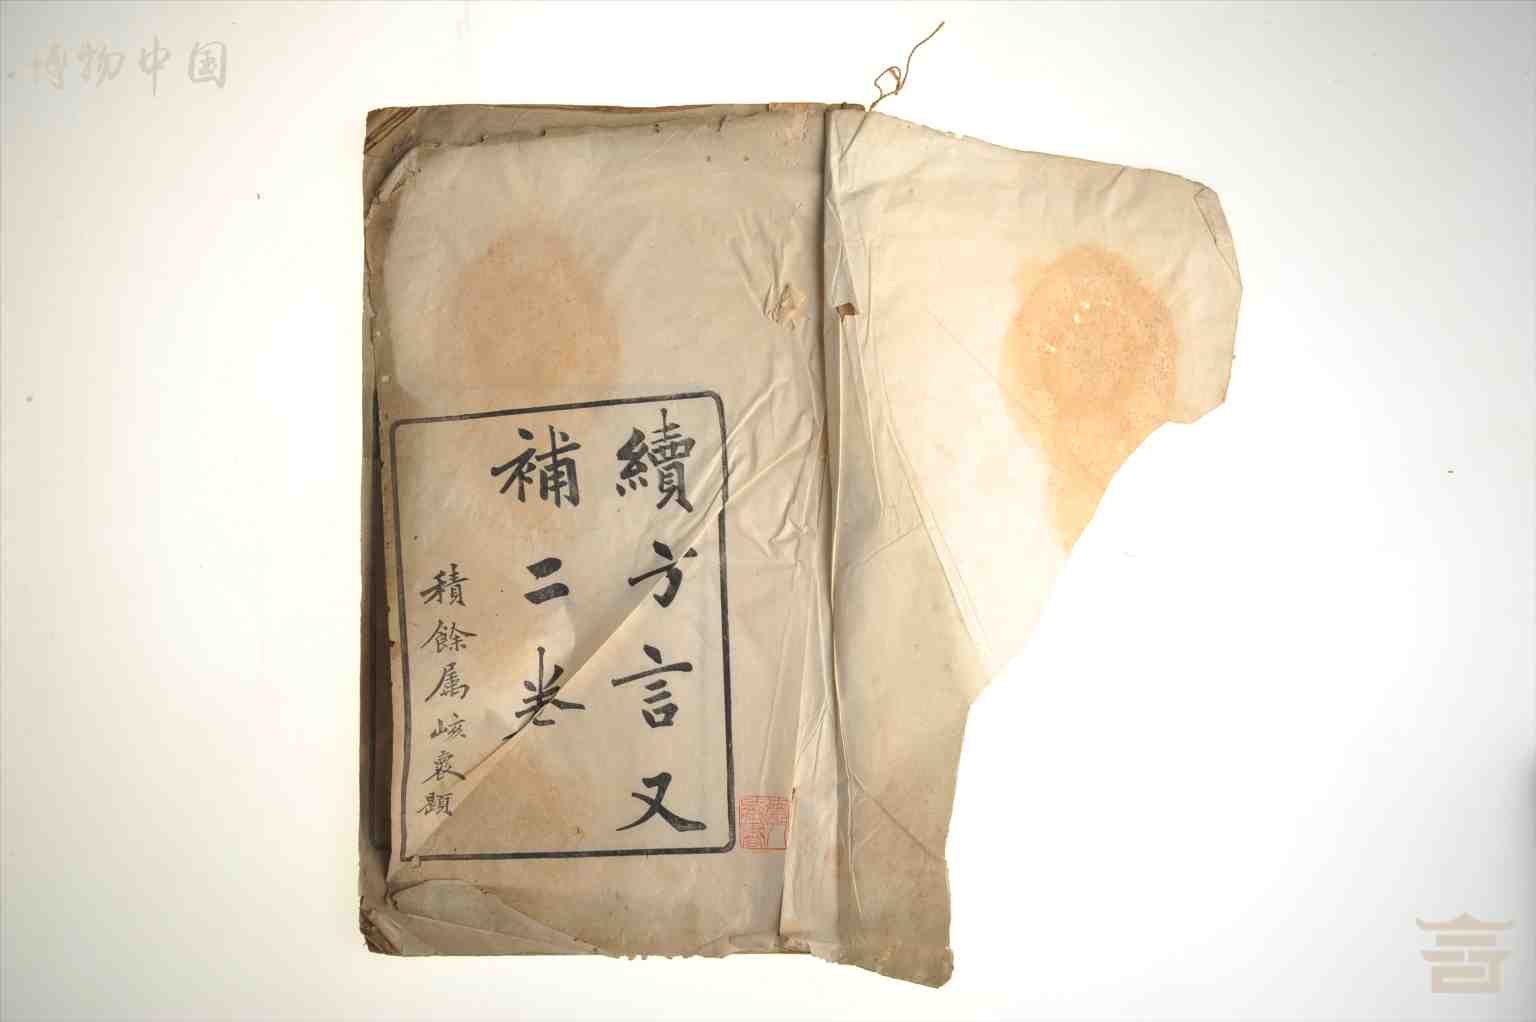 博物中国
續方言又
補二卷
積餘属峐裏題